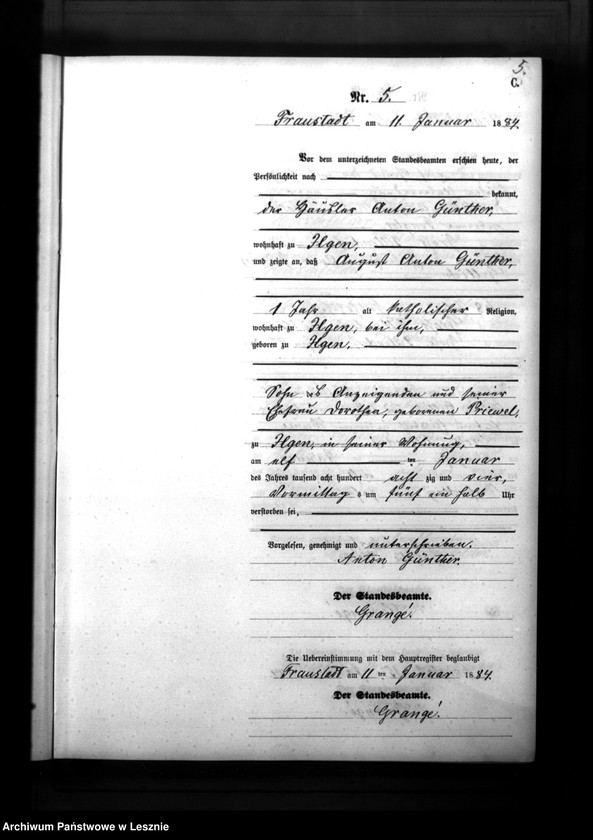 5.
C.
Nr. 5.
Fraustadt am 11. Januar 1884.
Vor dem unterzeichneten Standesbeamten erschien heute, der
Persönlichkeit nach
bekannt,
der Häusler Anton Günther,
wohnhaft zu Ilgen,
und zeigte an, daß August Anton Günther,
1 Jahr alt katholischer Religion,
wohnhaft zu Ilgen, bei ihm,
geboren zu Ilgen,
Sohn des Anzeigenden und seiner
Ehefrau Dorothea, geborenen Priewel,
zu Ilgen, in seiner Wohnung,
am elf ten Januar
des Jahres tausend acht hundert acht zig und vier,
Vormittag s um fünf ein halb Uhr
verstorben sei,
Vorgelesen, genehmigt und unterschrieben.
Anton Günther.
Der Standesbeamte.
Grangé.
Die Uebereinstimmung mit dem Hauptregister beglaubigt
Fraustadt am 11 ten Januar 1884.
Der Standesbeamte.
Grangé.
Archiwum Państwowe w Lesznie